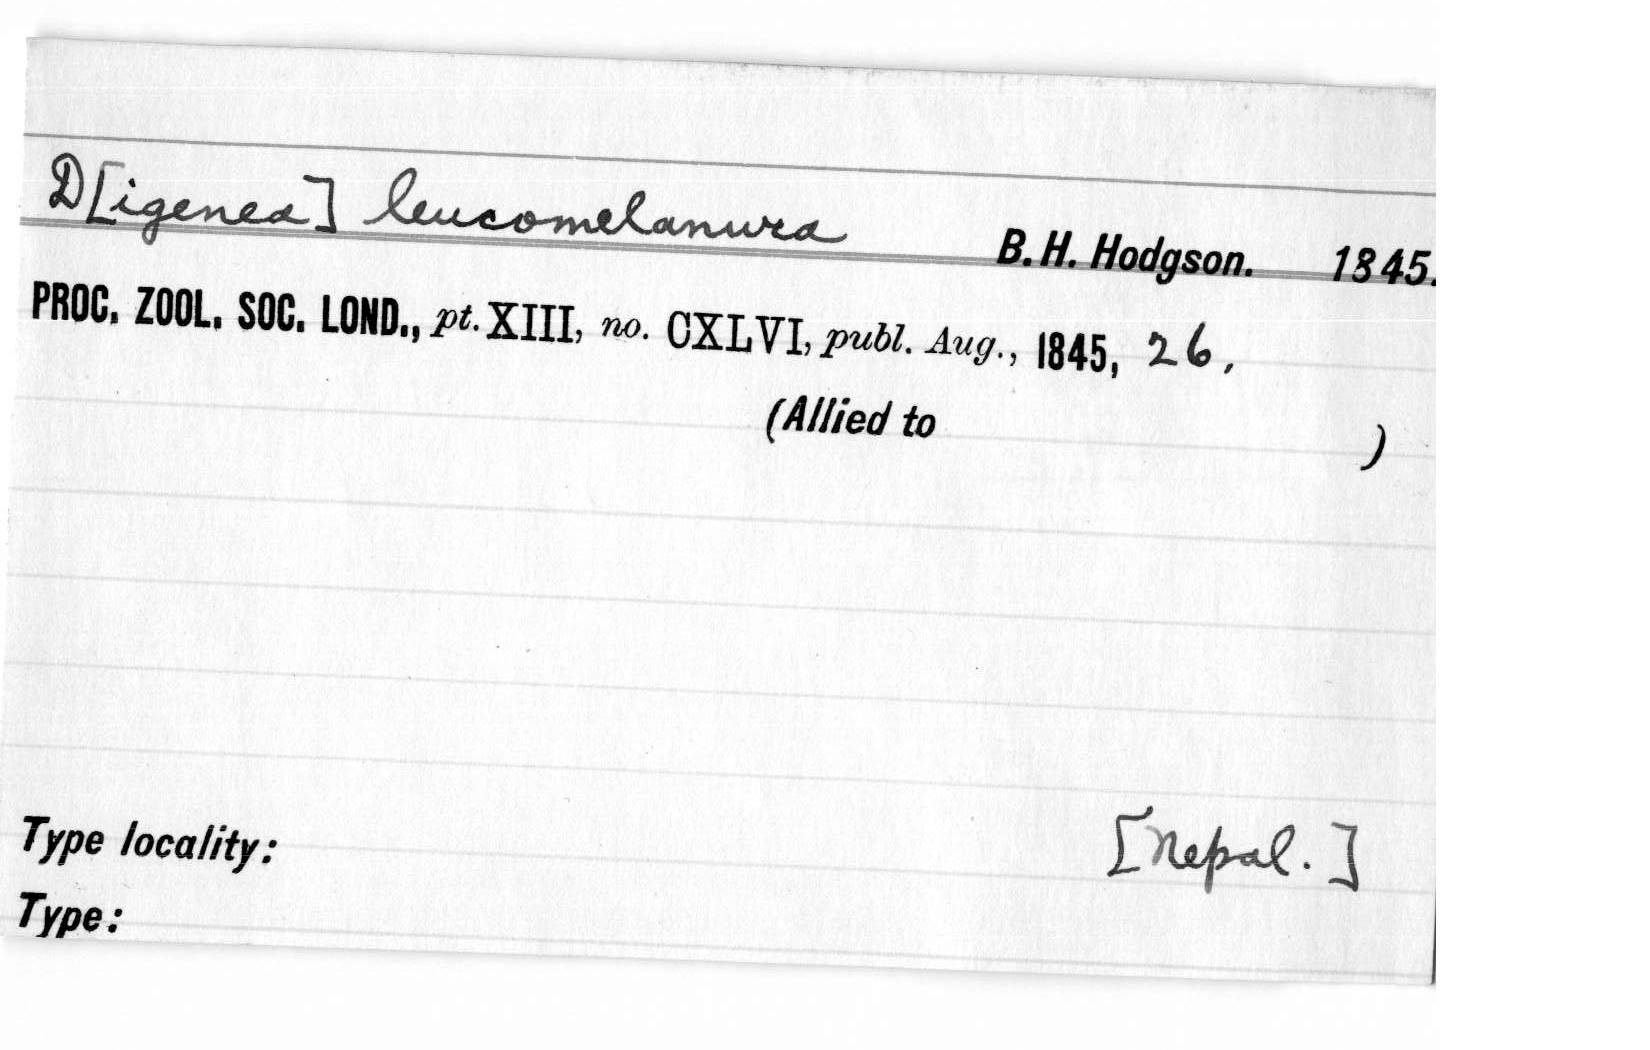 D[igenea] leucomelanura B. H. Hodgson. 1845.
PROC. ZOOL. SOC. LOND., pt. XIII, no. CXLVI, publ. Aug., 1845, 26,
(Allied to )
Type locality: [Nepal.]
Type: